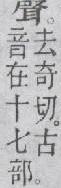 聲。去奇切。古
音在十七部。